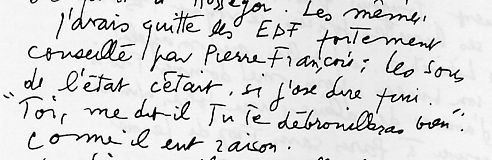 à Hossegor. Les mêmes.
J'avais quitté les EDF fortement
conseillé par Pierre François; les sous
de l'état c'était, si j'ose dire fini.
"Toi, me dit il Tu te débrouilleras bien".
Comme il eut raison.